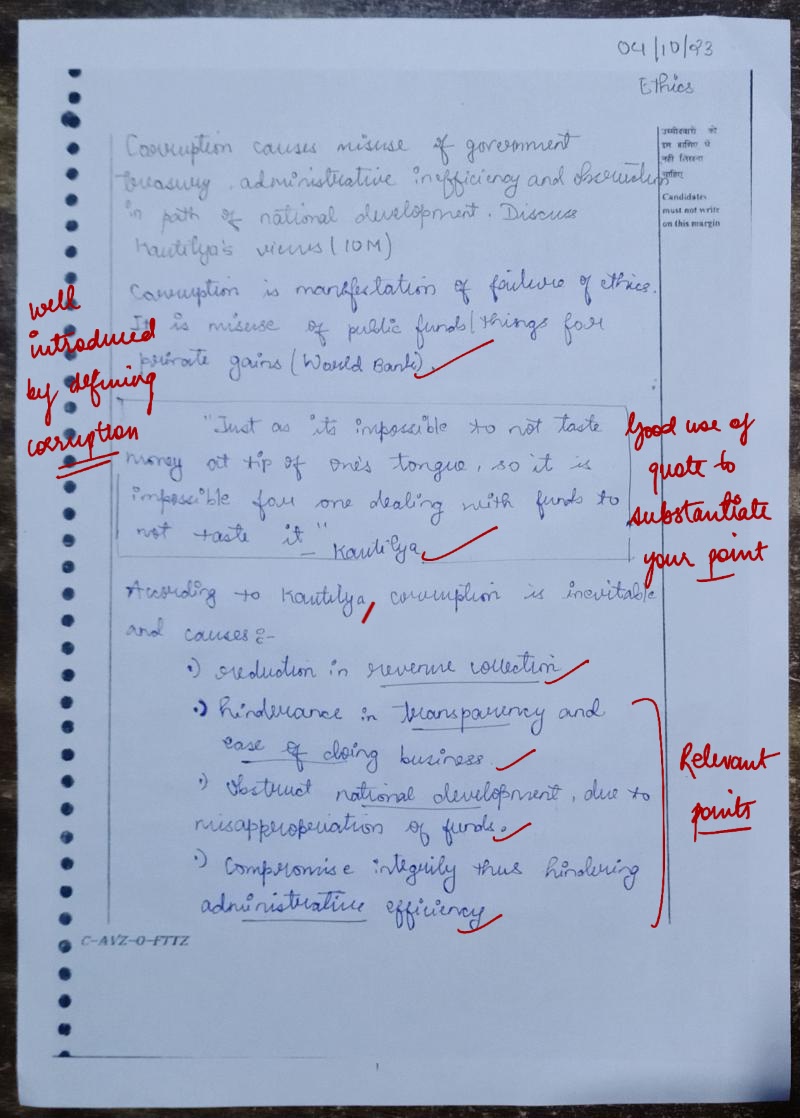 04/10/23
Ethics
उम्मीदवारों को
इस हाशिए में
नहीं लिखना
चाहिए
Candidates
must not write
on this margin
Corruption causes misuse of government
treasury, administrative inefficiency and obscruction
in path of national development. Discuss
Kautilya's views (10M)
Corruption is manifestation of failure of ethics.
It is misuse of public funds/things for
private gains (World Bank).
well
introduced
by defining
corruption
"Just as its impossible to not taste
money at tip of one's tongue, so it is
impossible for one dealing with funds to
not taste it"
- Kautilya
Good use of
quote to
substantiate
your point
According to Kautilya, corruption is inevitable
and causes:-
•) reduction in revenue collection
•) hinderance in transparency and
ease of doing business.
•) Obstruct national development, due to
misappropriation of funds.
•) Compromise integrity thus hindering
administrative efficiency
Relevant
points
C-AVZ-O-FTTZ
1